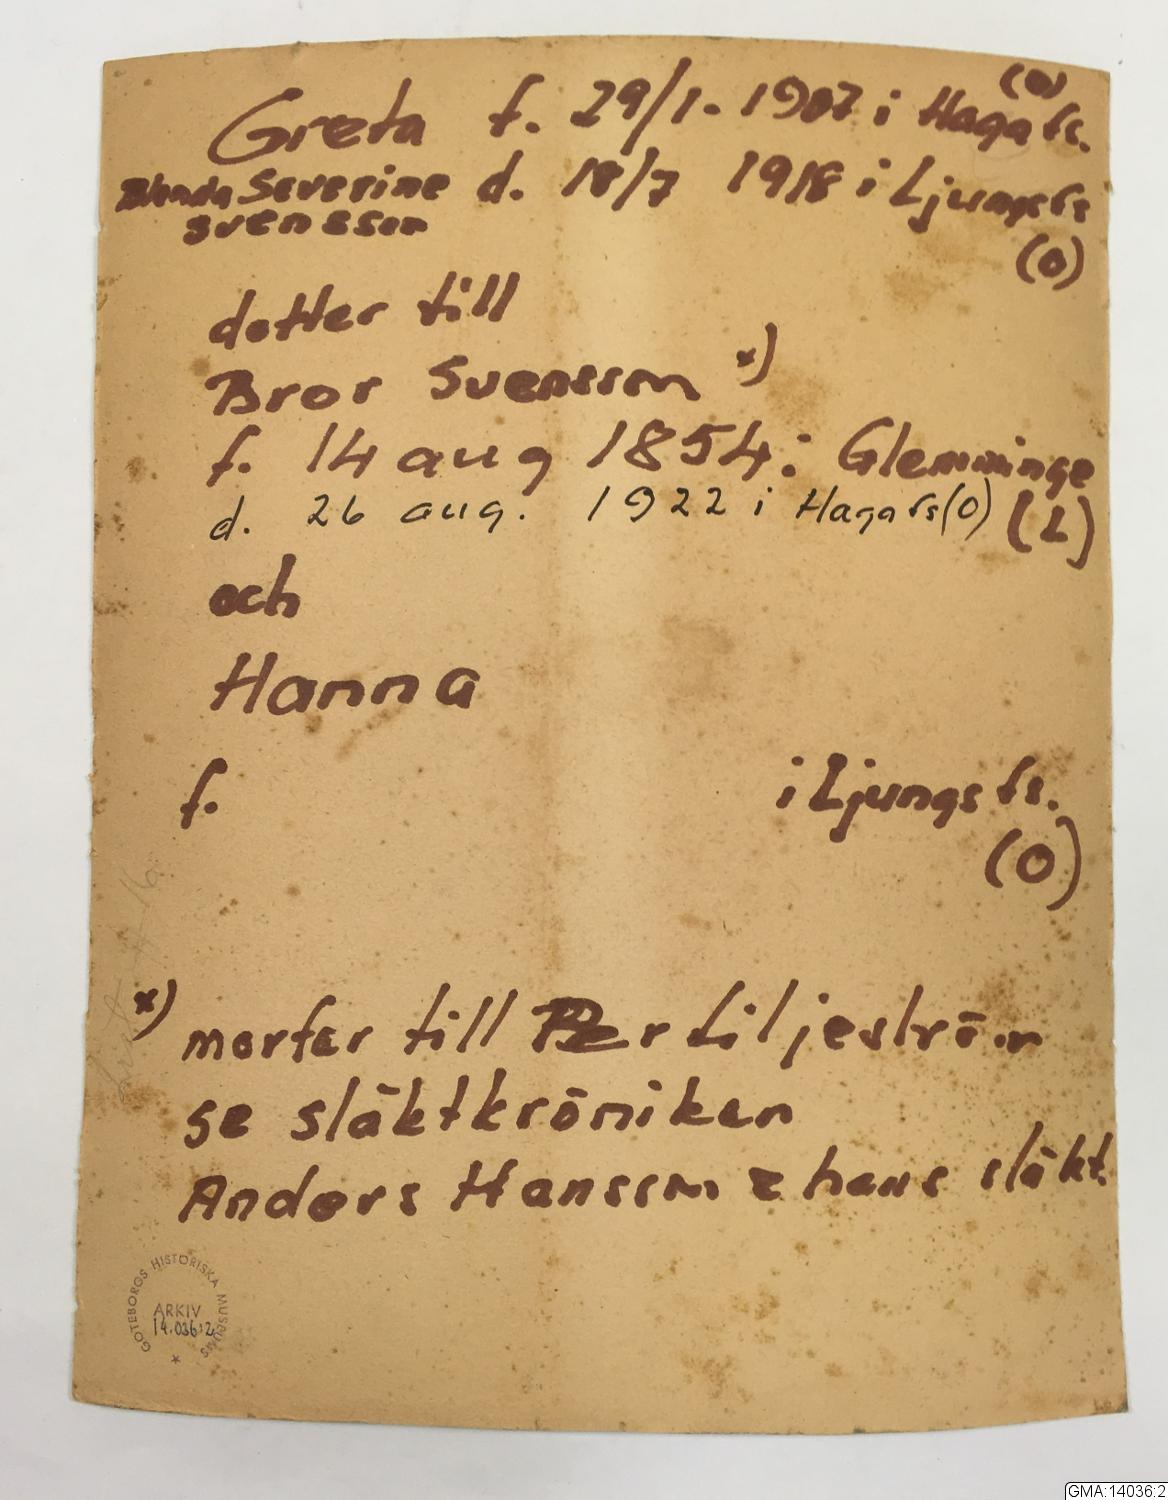 (O)
Greta f. 29/1. 1907 i Haga fs.
Blenda Severine d. 18/7 1918 i Ljungs fs
Svensson
(O)
dotter till
Bror Svensson x)
f. 14 aug 1854 i Glemminge
d. 26 aug. 1922 i Haga fs (O) (L)
och
Hanna
f. i Ljungs fs.
(O)
x) morfar till Per Liljeström
se släktkröniken
Anders Hansson & hans släkt.
GÖTEBORGS HISTORISKA MUSEUMS
ARKIV
14.036:2
GMA:14036:2